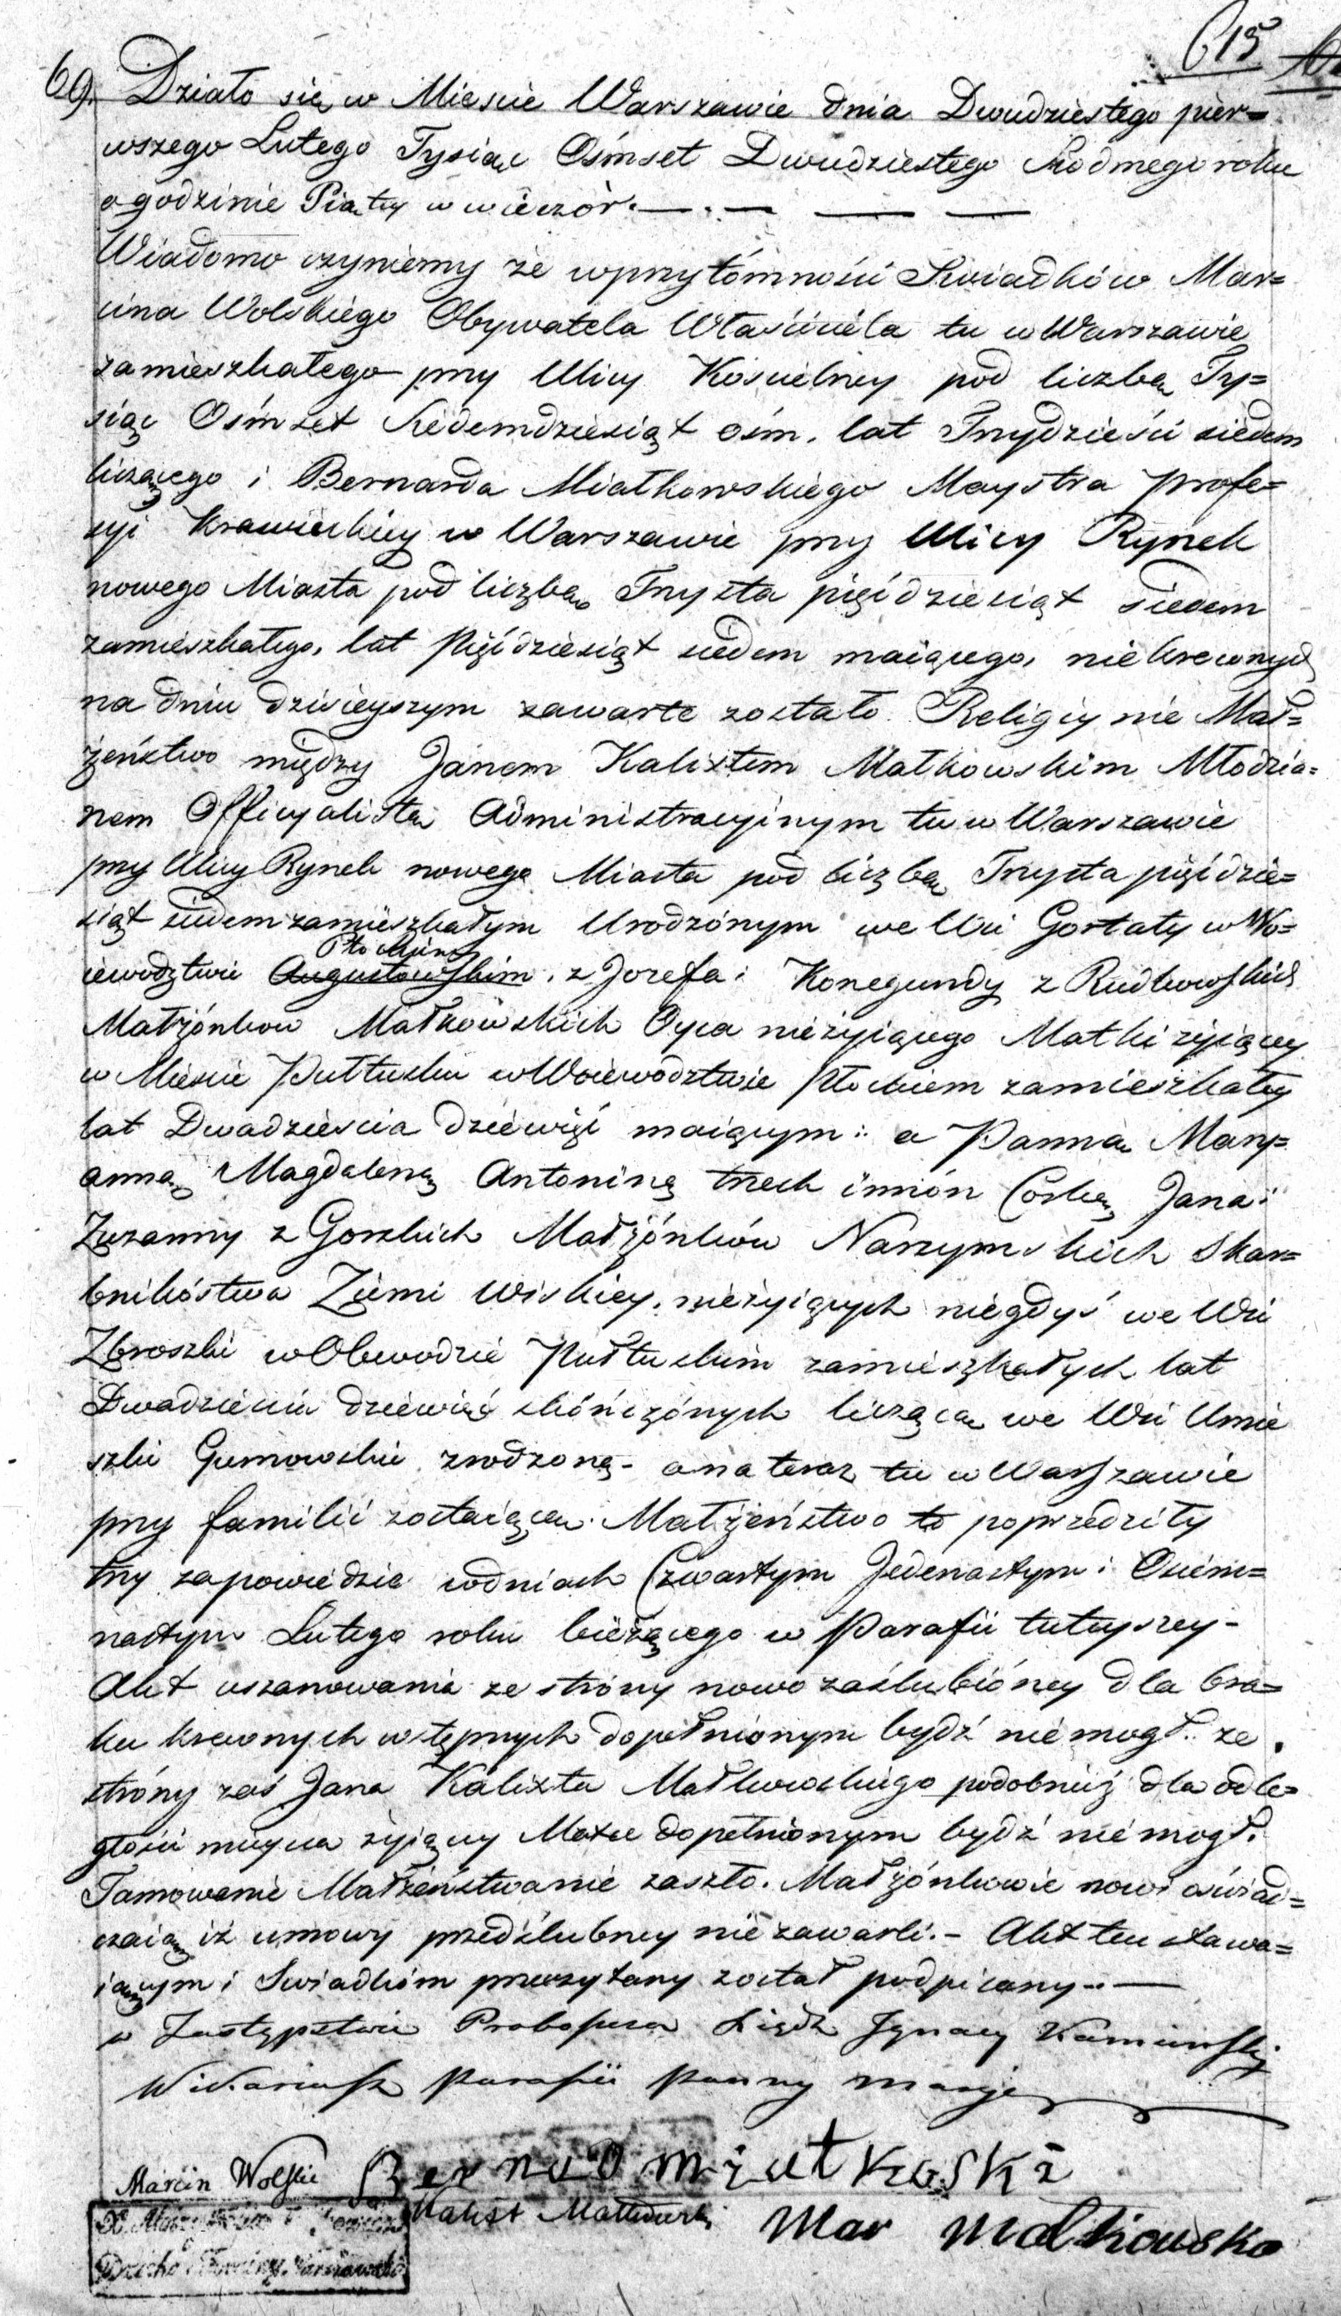 615
69. Działo się w Miescie Warszawie dnia Dwudziestego pier=
wszego Lutego Tysiąc Ośmset Dwudziestego Siodmego roku
o godzinie Piątey w wieczór. — . — — —
Wiadomo czyniemy że w przytómności Swiadków Mar=
cina Wolskiego Obywatela Właściciela tu w Warszawie
zamieszkałego przy Ulicy Koscielney pod liczbą Ty=
siąc Ośmset Siedemdziesiąt ośm. lat Trzydzieści siedem
liczącego i Bernarda Miałkowskiego Maystra profe=
syi Krawieckiey w Warszawie przy Ulicy Rynek
nowego Miasta pod liczbą Trzysta pięśdziesiąt siedem
zamieszkałego, lat Pięśdziesiąt siedem maiącego, nie krewnych
na dniu dzisieyszym zawarte zostało Religiynie Mał=
żeństwo między Janem Kalixtem Małkowskim Młodzia=
nem Officyalistą Administracyinym tu w Warszawie
przy Ulicy Rynek nowego Miasta pod liczbą Trzysta pięśdzie=
siąt siedem zamieszkałym Urodzónym we Wsi Gostaty w Wo=
Płockim
iewodztwie Augustowskim, z Jozefa i Konegundy z Rudkowskich
Małżónków Małkowskich Oyca nieżyiącego Matki żyiącey
w Miescie Pułtusku w Woiewodztwie Płockiem zamieszkałey
lat Dwadzieścia dziewięć maiącym: a Panną Mary=
anną Magdaleną Antoniną trzech imión Corką Jana i
Zuzanny z Gorskich Małżónków Narzymskich Skar=
bnikóstwa Ziemi Wiskiey, nieżyiących niegdyś we Wsi
Zbroszki w Obwodzie Pułtuskim zamieszkałych lat
Dwadzieścia dziewięć skóńczónych liczącą we Wsi Umie
szki Gumowskie zrodzoną - a na teraz tu w Warszawie
przy familii zostaiącą. Małżeństwo to poprzedziły
trzy zapowiedzie w dniach Czwartym Jedenastym i Osiem=
nastym Lutego roku bieżącego w Parafii tuteyszey -
Akt uszanowania ze stróny nowo zaślubióney dla bra=
ku krewnych wstępnych dopełnionym bydź nie mogł. ze
stróny zaś Jana Kalixta Małkowskiego podobnież dla odle=
głości mieysca żyiącey Matce dopełnionym bydź nie mogł.
Tamowanie Małżeństwa nie zaszło. Małżónkowie nowi oświad=
czaią iż umowy przedślubney nie zawarli. - Akt ten stawa=
iącym i Swiadkóm przeczytany został podpisany. —
w Zastępstwie Proboszcza Xiądz Ignacy Kaminski
Wikariusz Parafii Panny Maryi
Marcin Wolski Bernad miatkoski
Kalixt Małkowski Mar Malkowska